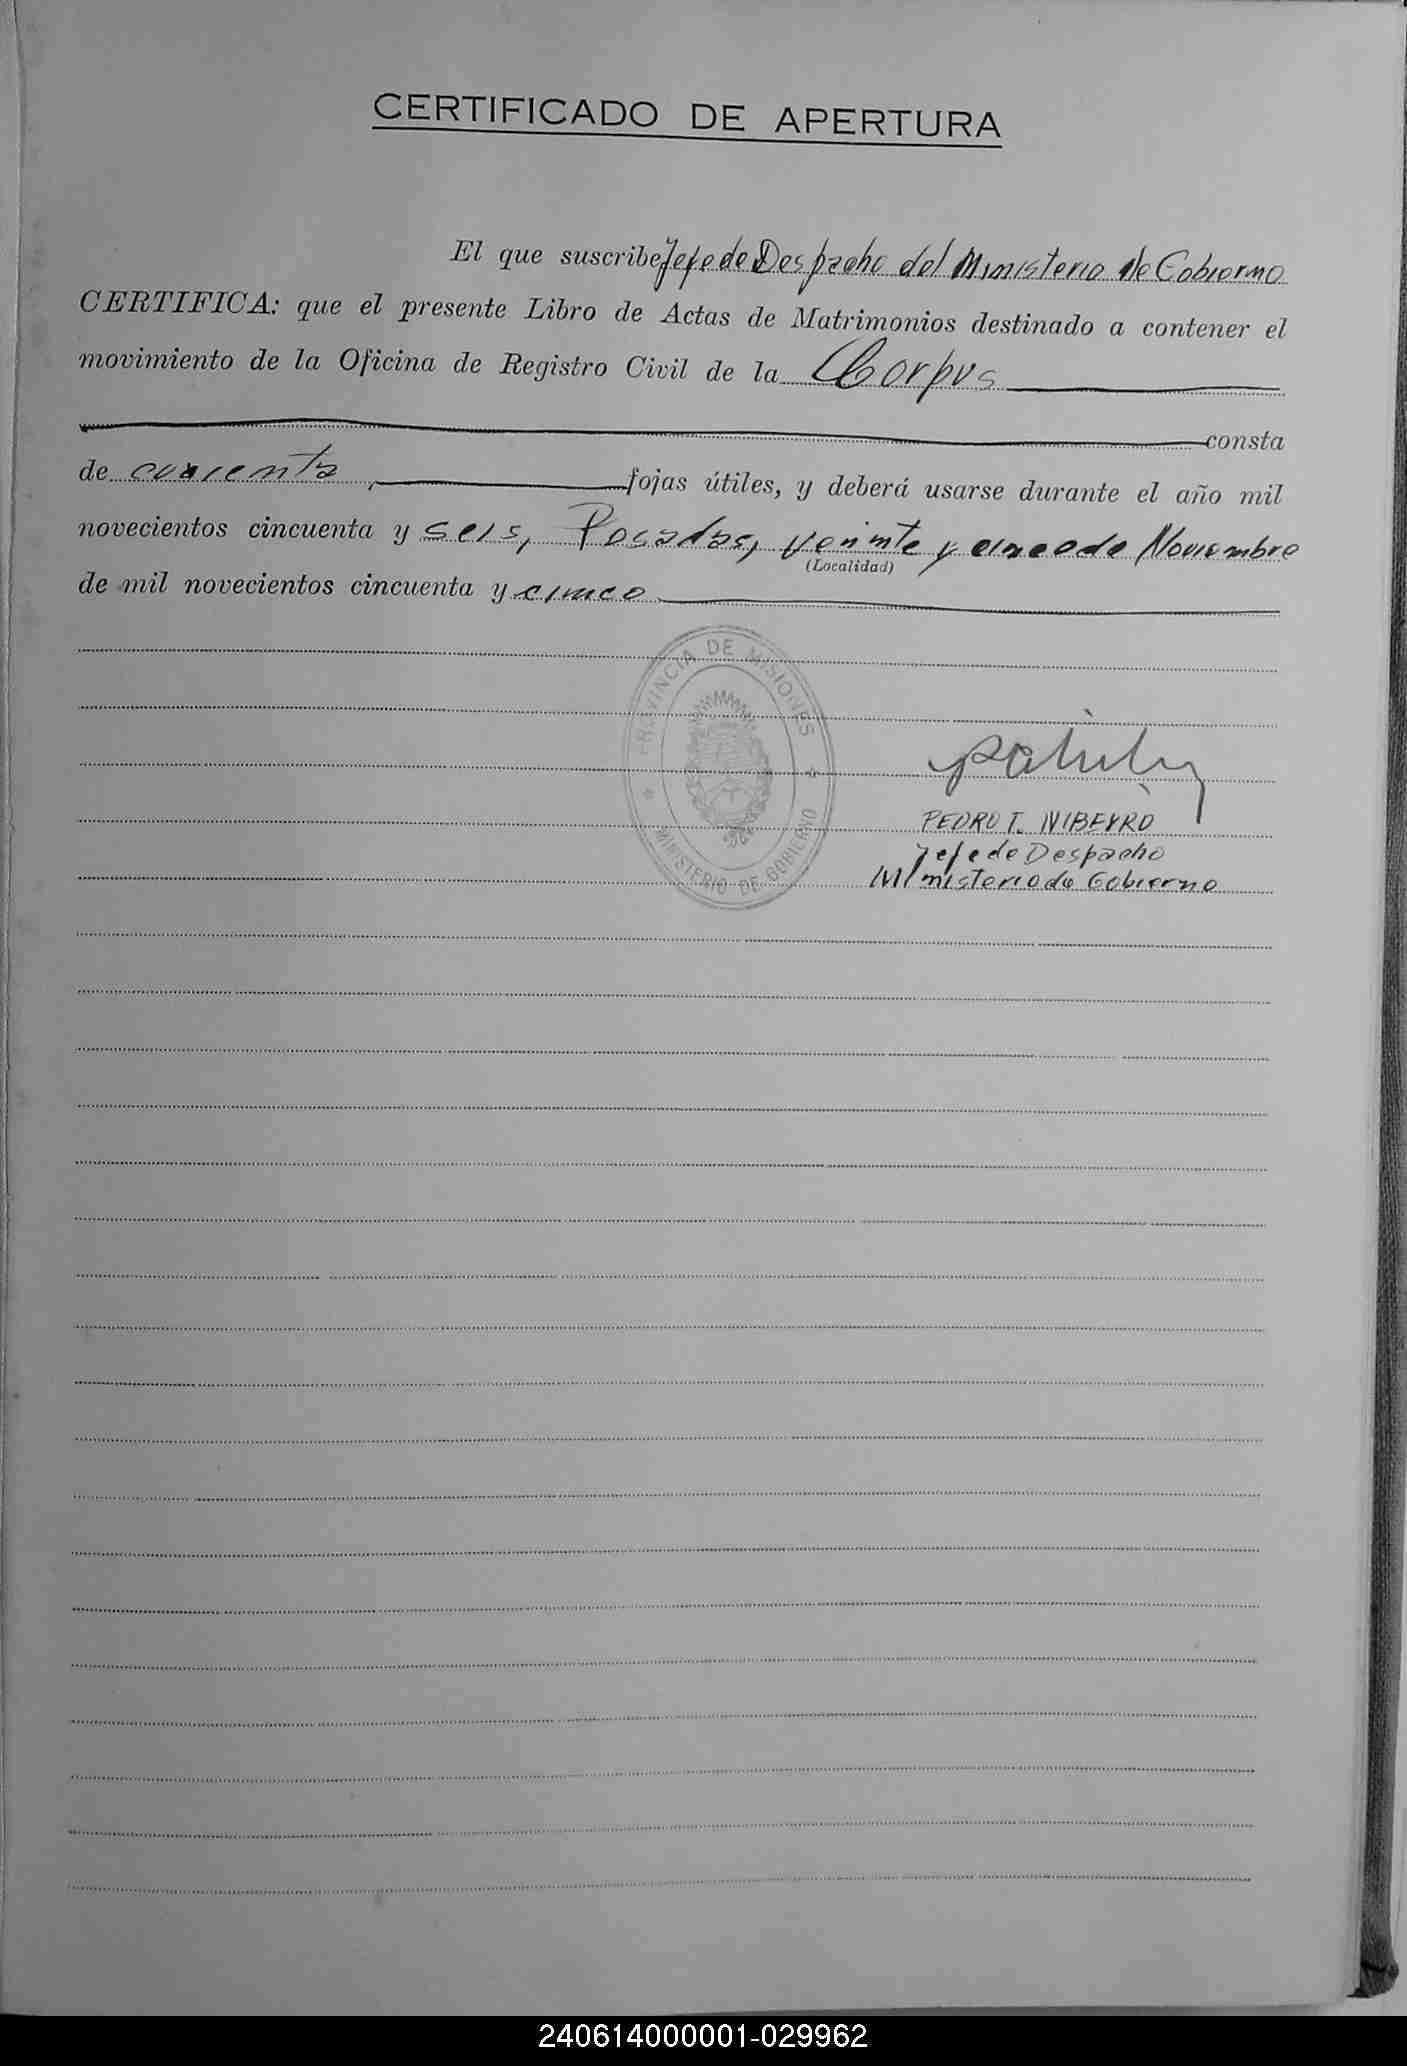 CERTIFICADO DE APERTURA
El que suscribe Jefe de Despacho del Ministerio de Gobierno
CERTIFICA: que el presente Libro de Actas de Matrimonios destinado a contener el
movimiento de la Oficina de Registro Civil de la Corpus
consta
de cuarenta, fojas útiles, y deberá usarse durante el año mil
novecientos cincuenta y seis, Posadas, veinte y cinco de Noviembre
(Localidad)
de mil novecientos cincuenta y cinco
PROVINCIA DE MISIONES
MINISTERIO DE GOBIERNO
PEDRO T. NIBEYRO
Jefe de Despacho
Ministerio de Gobierno
240614000001-029962